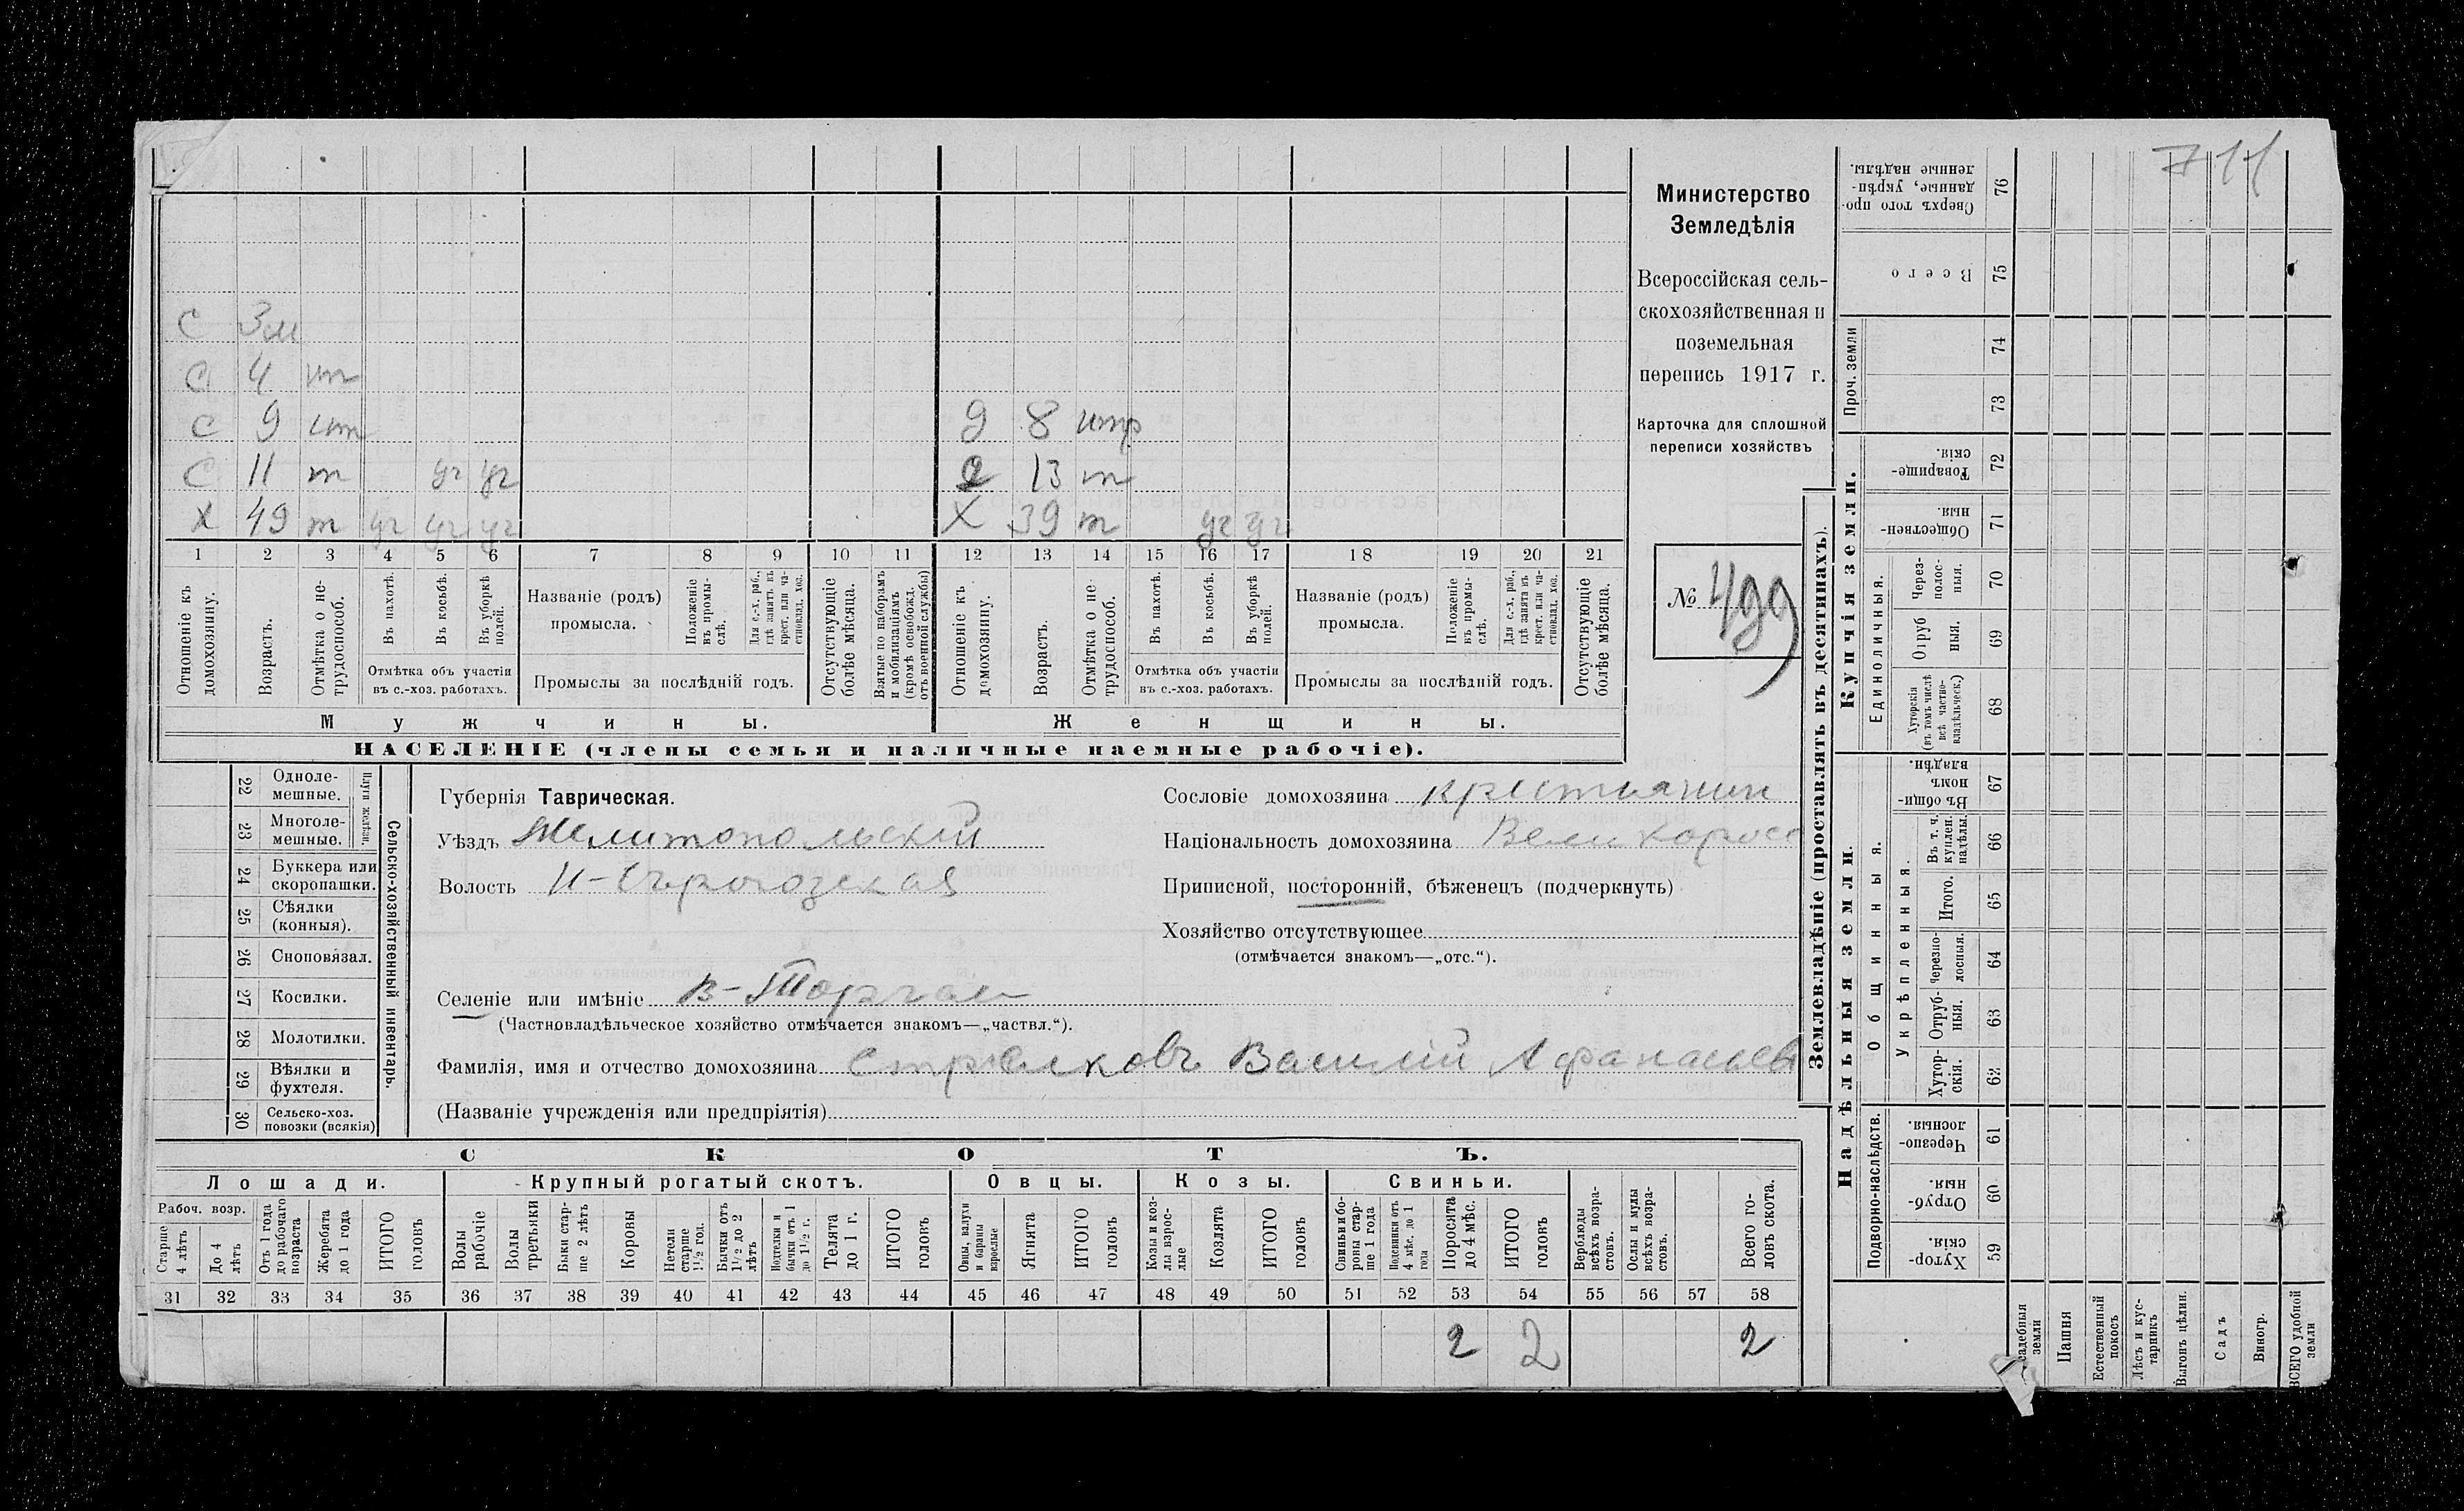 711
Министерство
Земледѣлія
Всероссійская сель-
скохозяйственная и
поземельная
перепись 1917 г.
Карточка для сплошной
переписи хозяйствъ
№ 489
С 3м
С 4
С 9
С 11 уч уч
Х 49 уч уч уч
9 8
13
Х 39 уч уч
1 2 3 4 5 6 7 8 9 10 11 12 13 14 15 16 17 18 19 20 21
Отношеніе къ домохозяину.
Возрастъ.
Отмѣтка о не-трудоспособ.
Въ пахотѣ.
Въ косьбѣ.
Въ уборкѣ полей.
Отмѣтка объ участіи
въ с.-хоз. работахъ.
Названіе (родъ)
промысла.
Положеніе въ промы-слѣ.
Для с.-х. раб., гдѣ занятъ въ крест. или ча-стновлад. хоз.
Промыслы за послѣдній годъ.
Отсутствующіе болѣе мѣсяца.
Взятые по наборамъ и мобилизаціямъ (кромѣ освобожд. отъ военной службы)
Отношеніе къ домохозяину.
Возрастъ.
Отмѣтка о не-трудоспособ.
Въ пахотѣ.
Въ косьбѣ.
Въ уборкѣ полей.
Отмѣтка объ участіи
въ с.-хоз. работахъ.
Названіе (родъ)
промысла.
Положеніе въ промы-слѣ.
Для с.-х. раб., гдѣ занята въ крест. или ча-стновлад. хоз.
Промыслы за послѣдній годъ.
Отсутствующіе болѣе мѣсяца.
Мужчины.
Женщины.
НАСЕЛЕНІЕ (члены семья и наличные наемные рабочіе).
Сельско-хозяйственный инвентарь.
Плуги желѣзн.
22 Одноле-мешные.
23 Многоле-мешные.
24 Буккера или скоропашки.
25 Сѣялки (конныя).
26 Сноповязал.
27 Косилки.
28 Молотилки.
29 Вѣялки и фухтеля.
30 Сельско-хоз. повозки (всякія)
Губернія Таврическая.
Уѣздъ Мелитопольскій
Волость Н-Сѣрогозская
Сословіе домохозяина крестьянин
Національность домохозяина Великоросс
Приписной, посторонній, бѣженецъ (подчеркнуть)
Хозяйство отсутствующее
(отмѣчается знакомъ—„отс.“).
Селеніе или имѣніе В-Торгаи
(Частновладѣльческое хозяйство отмѣчается знакомъ—„частвл.“).
Фамилія, имя и отчество домохозяина Стрѣлковъ Василій Афанасьев
(Названіе учрежденія или предпріятія)
СКОТЪ.
Лошади.
Рабоч. возр.
Старше 4 лѣтъ
До 4 лѣтъ
Отъ 1 года до рабочаго возраста
Жеребята до 1 года
ИТОГО головъ
Крупный рогатый скотъ.
Волы рабочіе
Волы третьяки
Быки стар-ше 2 лѣтъ
Коровы
Нетели старше 1½ год.
Бычки отъ 1½ до 2 лѣтъ
Подтелки и бычки отъ 1 до 1½ г.
Телята до 1 г.
ИТОГО головъ
Овцы.
Овцы, валухи и бараны взрослые
Ягнята
ИТОГО головъ
Козы.
Козы и коз-лы взрос-лые
Козлята
ИТОГО головъ
Свиньи.
Свиньи и бо-ровы стар-ше 1 года
Подсвинки отъ 4 мѣс. до 1 года
Поросята до 4 мѣс.
ИТОГО головъ
Верблюды всѣхъ возра-стовъ.
Ослы и мулы всѣхъ возра-стовъ.
Всего го-ловъ скота.
31 32 33 34 35 36 37 38 39 40 41 42 43 44 45 46 47 48 49 50 51 52 53 54 55 56 57 58
2 2 2
Землевладѣніе (проставлять въ десятинахъ).
Купчія земли.
Надѣльныя земли.
Сверхъ того про-данные, укрѣп-ленные надѣлы. 76
Всего 75
Проч. земли
74
73
Товарище-скія. 72
Обществен-ныя. 71
Единоличныя.
Через-полос-ныя. 70
Отруб ныя. 69
Хуторскія (въ томъ числѣ всѣ частно-владѣльческ.) 68
Общинныя.
Въ общи-номъ владѣн. 67
Укрѣпленныя.
Въ т. ч. куплен. надѣлы. 66
Итого. 65
Черезпо-лосныя. 64
Отруб-ныя. 63
Хутор-скія. 62
Подворно-наслѣдств.
Черезпо-лосныя. 61
Отруб-ныя. 60
Хутор-скія. 59
садебныя земли
Пашня
Естественный покосъ
Лѣсъ и кус-тарникъ
Выгонъ цѣлин.
Садъ
Виногр.
ВСЕГО удобной земли